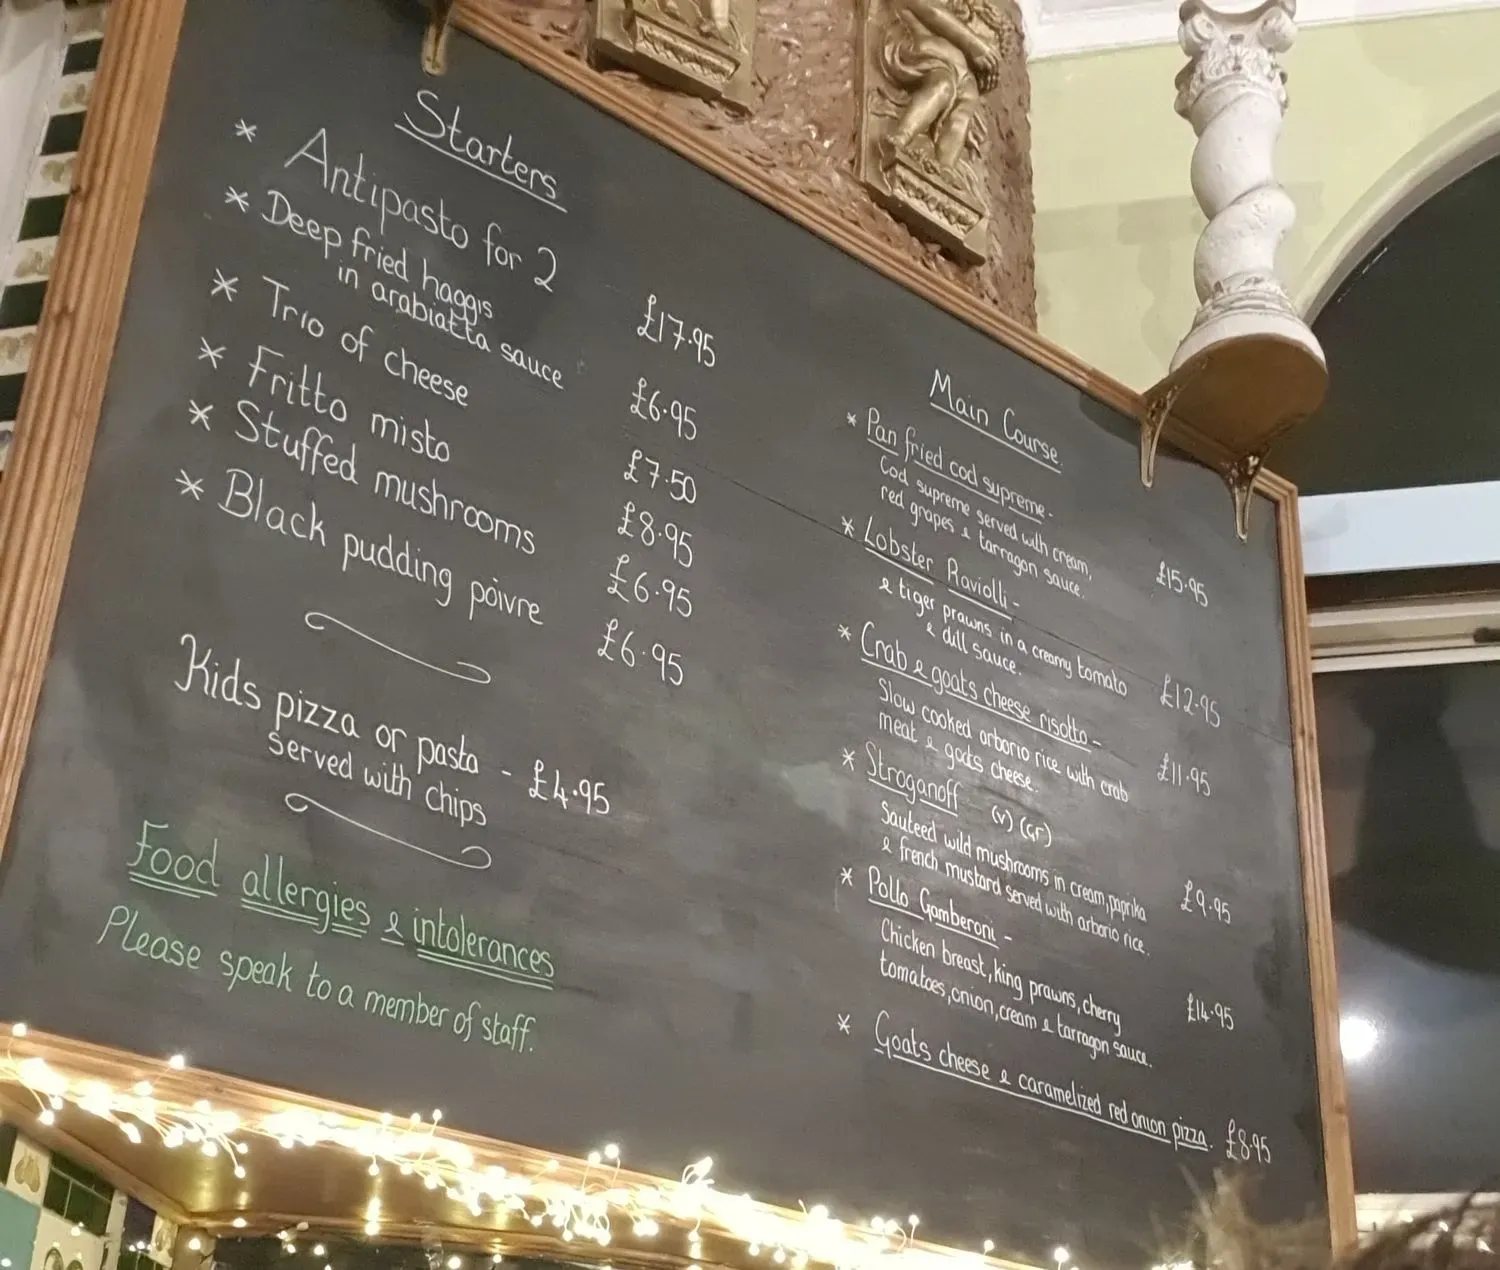 Starters
* Antipasto for 2 £17.95
* Deep fried haggis
in arabiatta sauce £6.95
* Trio of cheese £7.50
* Fritto misto £8.95
* Stuffed mushrooms £6.95
* Black pudding poivre £6.95
Kids pizza or pasta - £4.95
served with chips
Food allergies & intolerances
Please speak to a member of staff.
Main Course
* Pan fried cod supreme -
Cod supreme served with cream,
red grapes & tarragon sauce. £15.95
* Lobster Raviolli -
& tiger prawns in a creamy tomato
& dill sauce. £12.95
* Crab & goats cheese risotto -
Slow cooked arborio rice with crab
meat & goats cheese. £11.95
* Stroganoff (v) (GF)
Sauteed wild mushrooms in cream, paprika
& french mustard served with arborio rice. £9.95
* Pollo Gamberoni -
Chicken breast, king prawns, cherry
tomatoes, onion, cream & tarragon sauce. £14.95
* Goats cheese & caramelized red onion pizza. £8.95